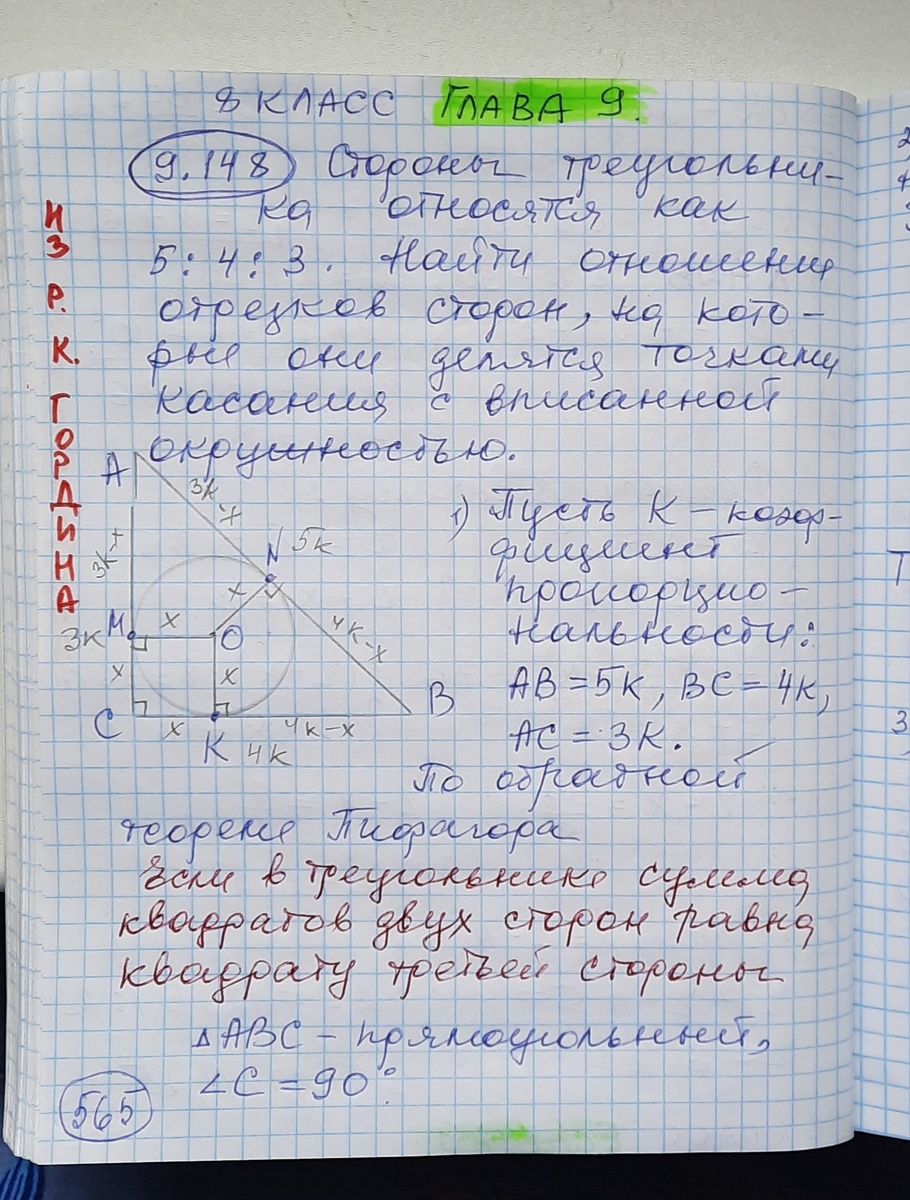 8 КЛАСС ГЛАВА 9.
9.148 Стороны треугольни-
ка относятся как
5:4:3. Найти отношения
отрезков сторон, на кото-
рые они делятся точками
касания с вписанной
окружностью.
ИЗ Р. К. ГОРДИНА
A
3k-x
N 5k
3k-x
M
x
x
O
4k-x
3k
x
x
C
x
K
4k
4k-x
B
1) Пусть K – коэф-
фициент
пропорцио-
нальности:
AB = 5k, BC = 4k,
AC = 3k.
По обратной
теореме Пифагора
Если в треугольнике сумма
квадратов двух сторон равна
квадрату третьей стороны
△ABC – прямоугольный,
∠C = 90°.
565